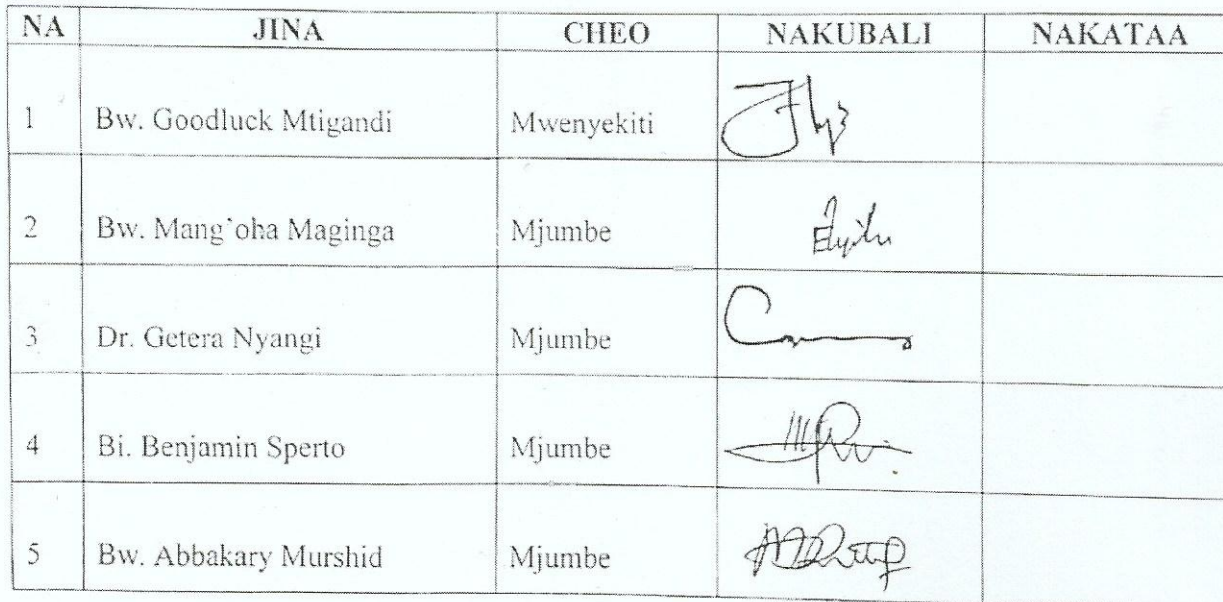 NA JINA CHEO NAKUBALI NAKATAA
1 Bw. Goodluck Mtigandi Mwenyekiti
2 Bw. Mang'oha Maginga Mjumbe
3 Dr. Getera Nyangi Mjumbe
4 Bi. Benjamin Sperto Mjumbe
5 Bw. Abbakary Murshid Mjumbe